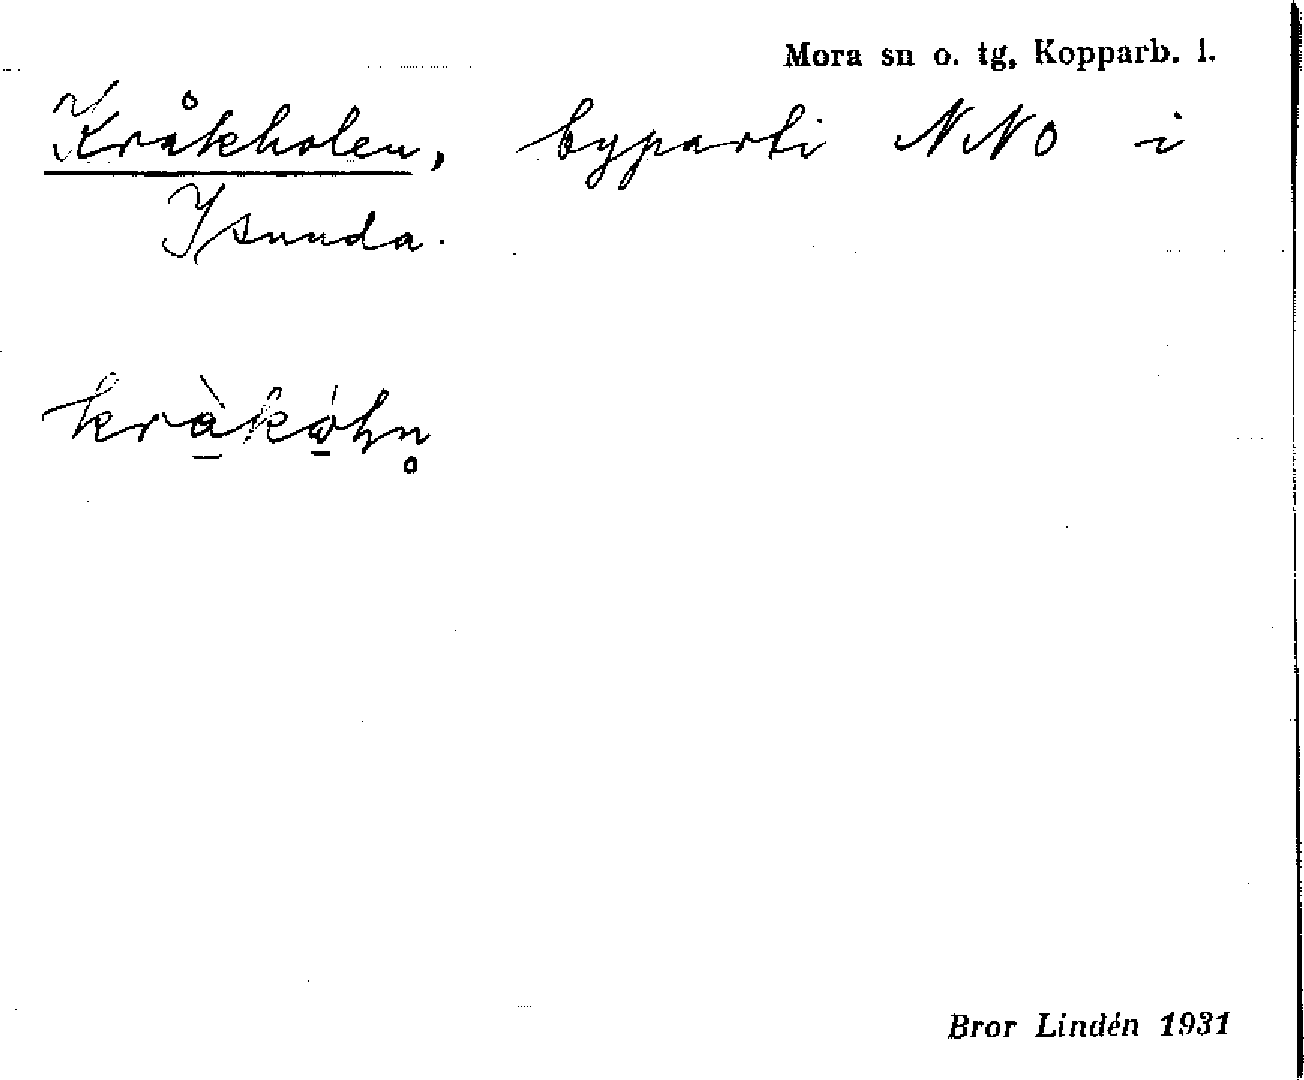 Mora sn o. tg, Kopparb. l.
Kråkholen, byparti NNO i
Isunda.
kràkóln̥
Bror Lindén 1931